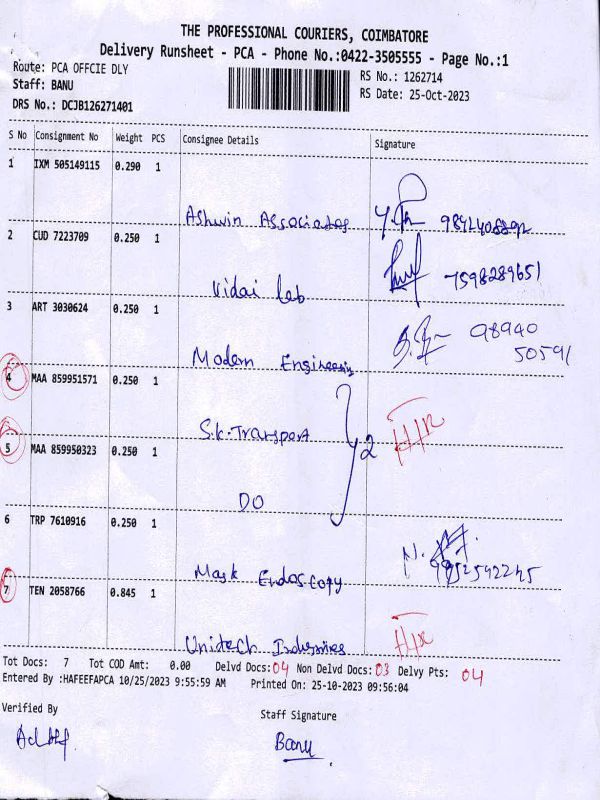 THE PROFESSIONAL COURIERS, COIMBATORE
Delivery Runsheet - PCA - Phone No.:0422-3505555 - Page No.:1
Route: PCA OFFCIE DLY
RS No.: 1262714
Staff: BANU
RS Date: 25-Oct-2023
DRS No.: DCJB126271401
S No Consignment No Weight PCS Consignee Details Signature
1 IXM 505149115 0.290 1
Ashwin Associates
2 CUD 7223709 0.250 1
Vidai Lab 7598289651
3 ART 3030624 0.250 1
Modern Engineering 98940 50591
4 MAA 859951571 0.250 1
S.K. Transport
2
5 MAA 859950323 0.250 1
DO
6 TRP 7610916 0.250 1
Mask Endoscopy 9952542245
7 TEN 2058766 0.845 1
Unitech Industries
Tot Docs: 7 Tot COD Amt: 0.00 Delvd Docs: 04 Non Delvd Docs: 03 Delvy Pts: 04
Entered By :HAFEEFAPCA 10/25/2023 9:55:59 AM Printed On: 25-10-2023 09:56:04
Verified By
Staff Signature
Banu